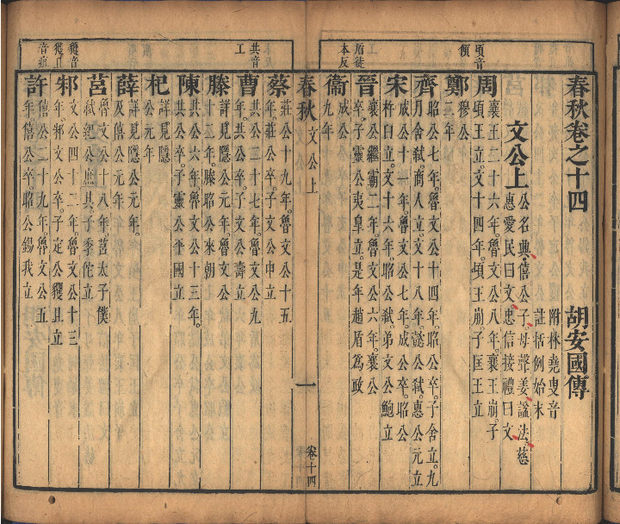 春秋卷之十四 胡安國傳
附林堯叟音
註括例始末
文公上
公名興僖公子母聲姜諡法慈
惠愛民曰文忠信接禮曰文
頃音
傾
周
襄王二十六年魯文公八年襄王崩子
頃王立文十四年頃王崩子匡王立
鄭
穆公
二年
齊
昭公七年魯文公十四年昭公卒子舍立九
月舍弒商人立文十八年懿公弒惠公元立
宋
成公十一年魯文公七年成公卒昭公
杵臼立文十六年昭公弒弟文公鮑立
盾徒
本反
晉
襄公繼霸二年魯文公六年襄公
卒子靈公夷皐立是年趙盾爲政
衞
成公
九年
春秋 文公上 一 卷十四
蔡
莊公十九年魯文公十五
年莊公卒子文公申立
共音
工
曹
共公二十七年魯文公九
年共公卒子文公壽立
滕
詳見隱公元年魯文公
十二年滕昭公來朝
陳
共公六年魯文公十三年
共公卒子靈公平國立
杞
詳見隱
公元年
薛
詳見隱公元年
及僖公元年
莒
魯文公十八年莒太子僕
弒紀公庶其子季佗立
邾
文公四十二年魯文公十三
年邾文公卒子定公貜且立
許
僖公二十九年魯文公五
年僖公卒昭公錫我立